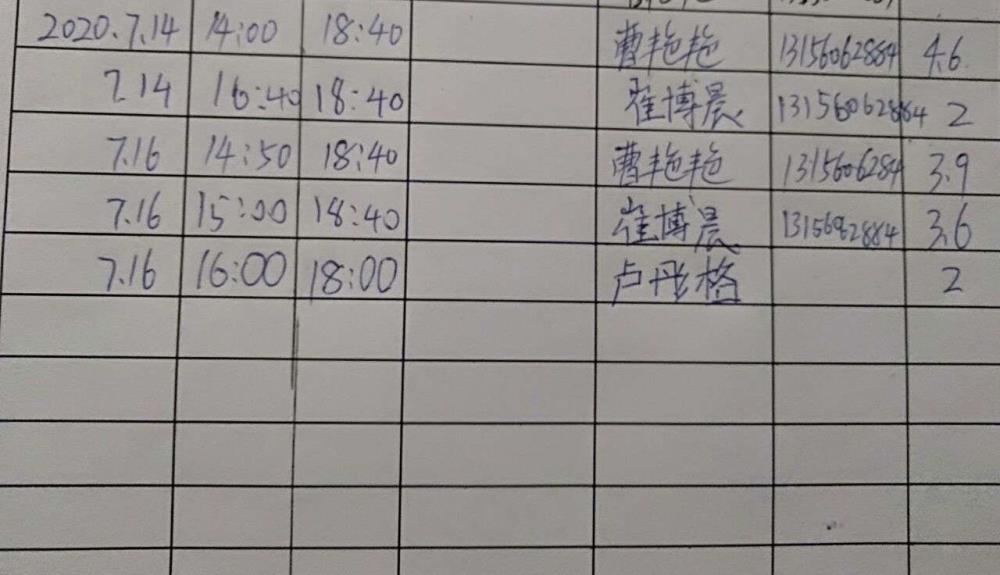 2020.7.14 14:00 18:40 曹艳艳 13156062884 4.6
7.14 16:40 18:40 崔博晨 13156062884 2
7.16 14:50 18:40 曹艳艳 1315606284 3.9
7.16 15:00 18:40 崔博晨 1315692884 3.6
7.16 16:00 18:00 卢丹格 2